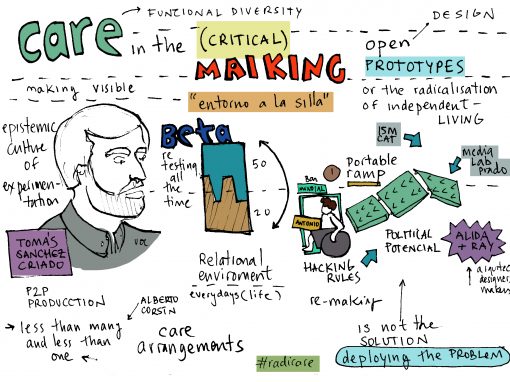 care
FUNCIONAL DIVERSITY
in the
(CRITICAL)
MAIKING
DESIGN
open
PROTOTYPES
or the radicalisation
of independent-
LIVING
making visible
"entorno a la silla"
epistemic
culture
of
experimen-
tation
Beta
re
testing
all
the
time
50
20
15M
CAT
media
Lab
prado
Portable
ramp
Ban
MUNDIAL
ANTONIO
HACKING
RULES
POLITICAL
POTENCIAL
ALIDA
+ RAY
TOMÁS
SANCHEZ
CRIADO
Relational
enviroment
everydays(life)
re-making
P2P
PRODUCCTION
ALBERTO
CORSÍN
less than many
and less than
one
care
arrangements
IS not the
SOLUTION
deploying the PROBLEM
#radicare